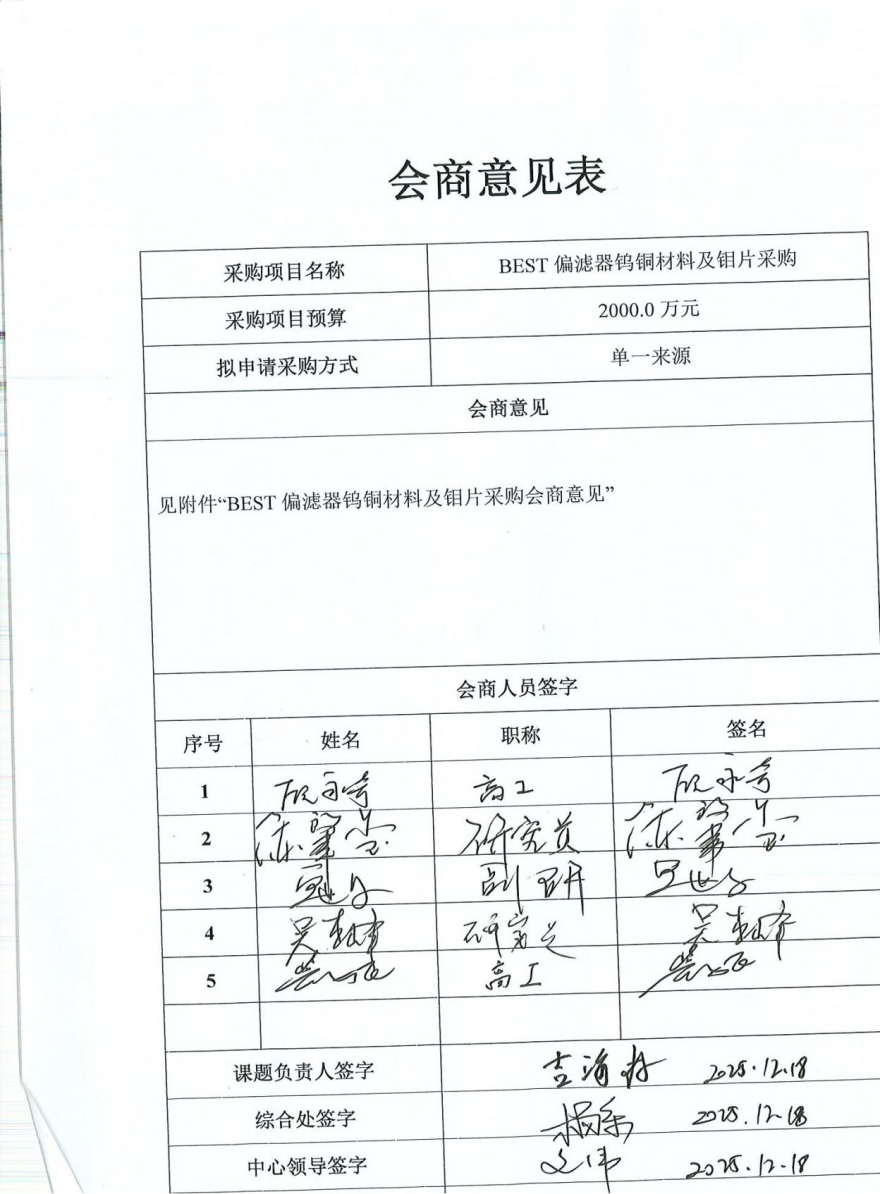 会商意见表
采购项目名称 BEST 偏滤器钨铜材料及钼片采购
采购项目预算 2000.0 万元
拟申请采购方式 单一来源
会商意见
见附件“BEST 偏滤器钨铜材料及钼片采购会商意见”
会商人员签字
序号 姓名 职称 签名
1 高工
2 研究员
3 副研
4 研究员
5 高工
课题负责人签字 2025.12.18
综合处签字 2025.12.18
中心领导签字 2025.12.18